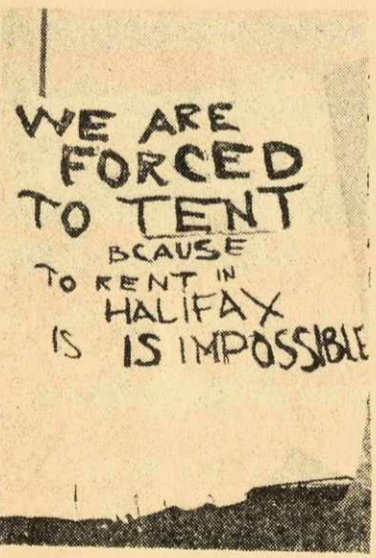 WE ARE
FORCED
TO TENT
BCAUSE
TO RENT IN
HALIFAX
IS IS IMPOSSIBLE